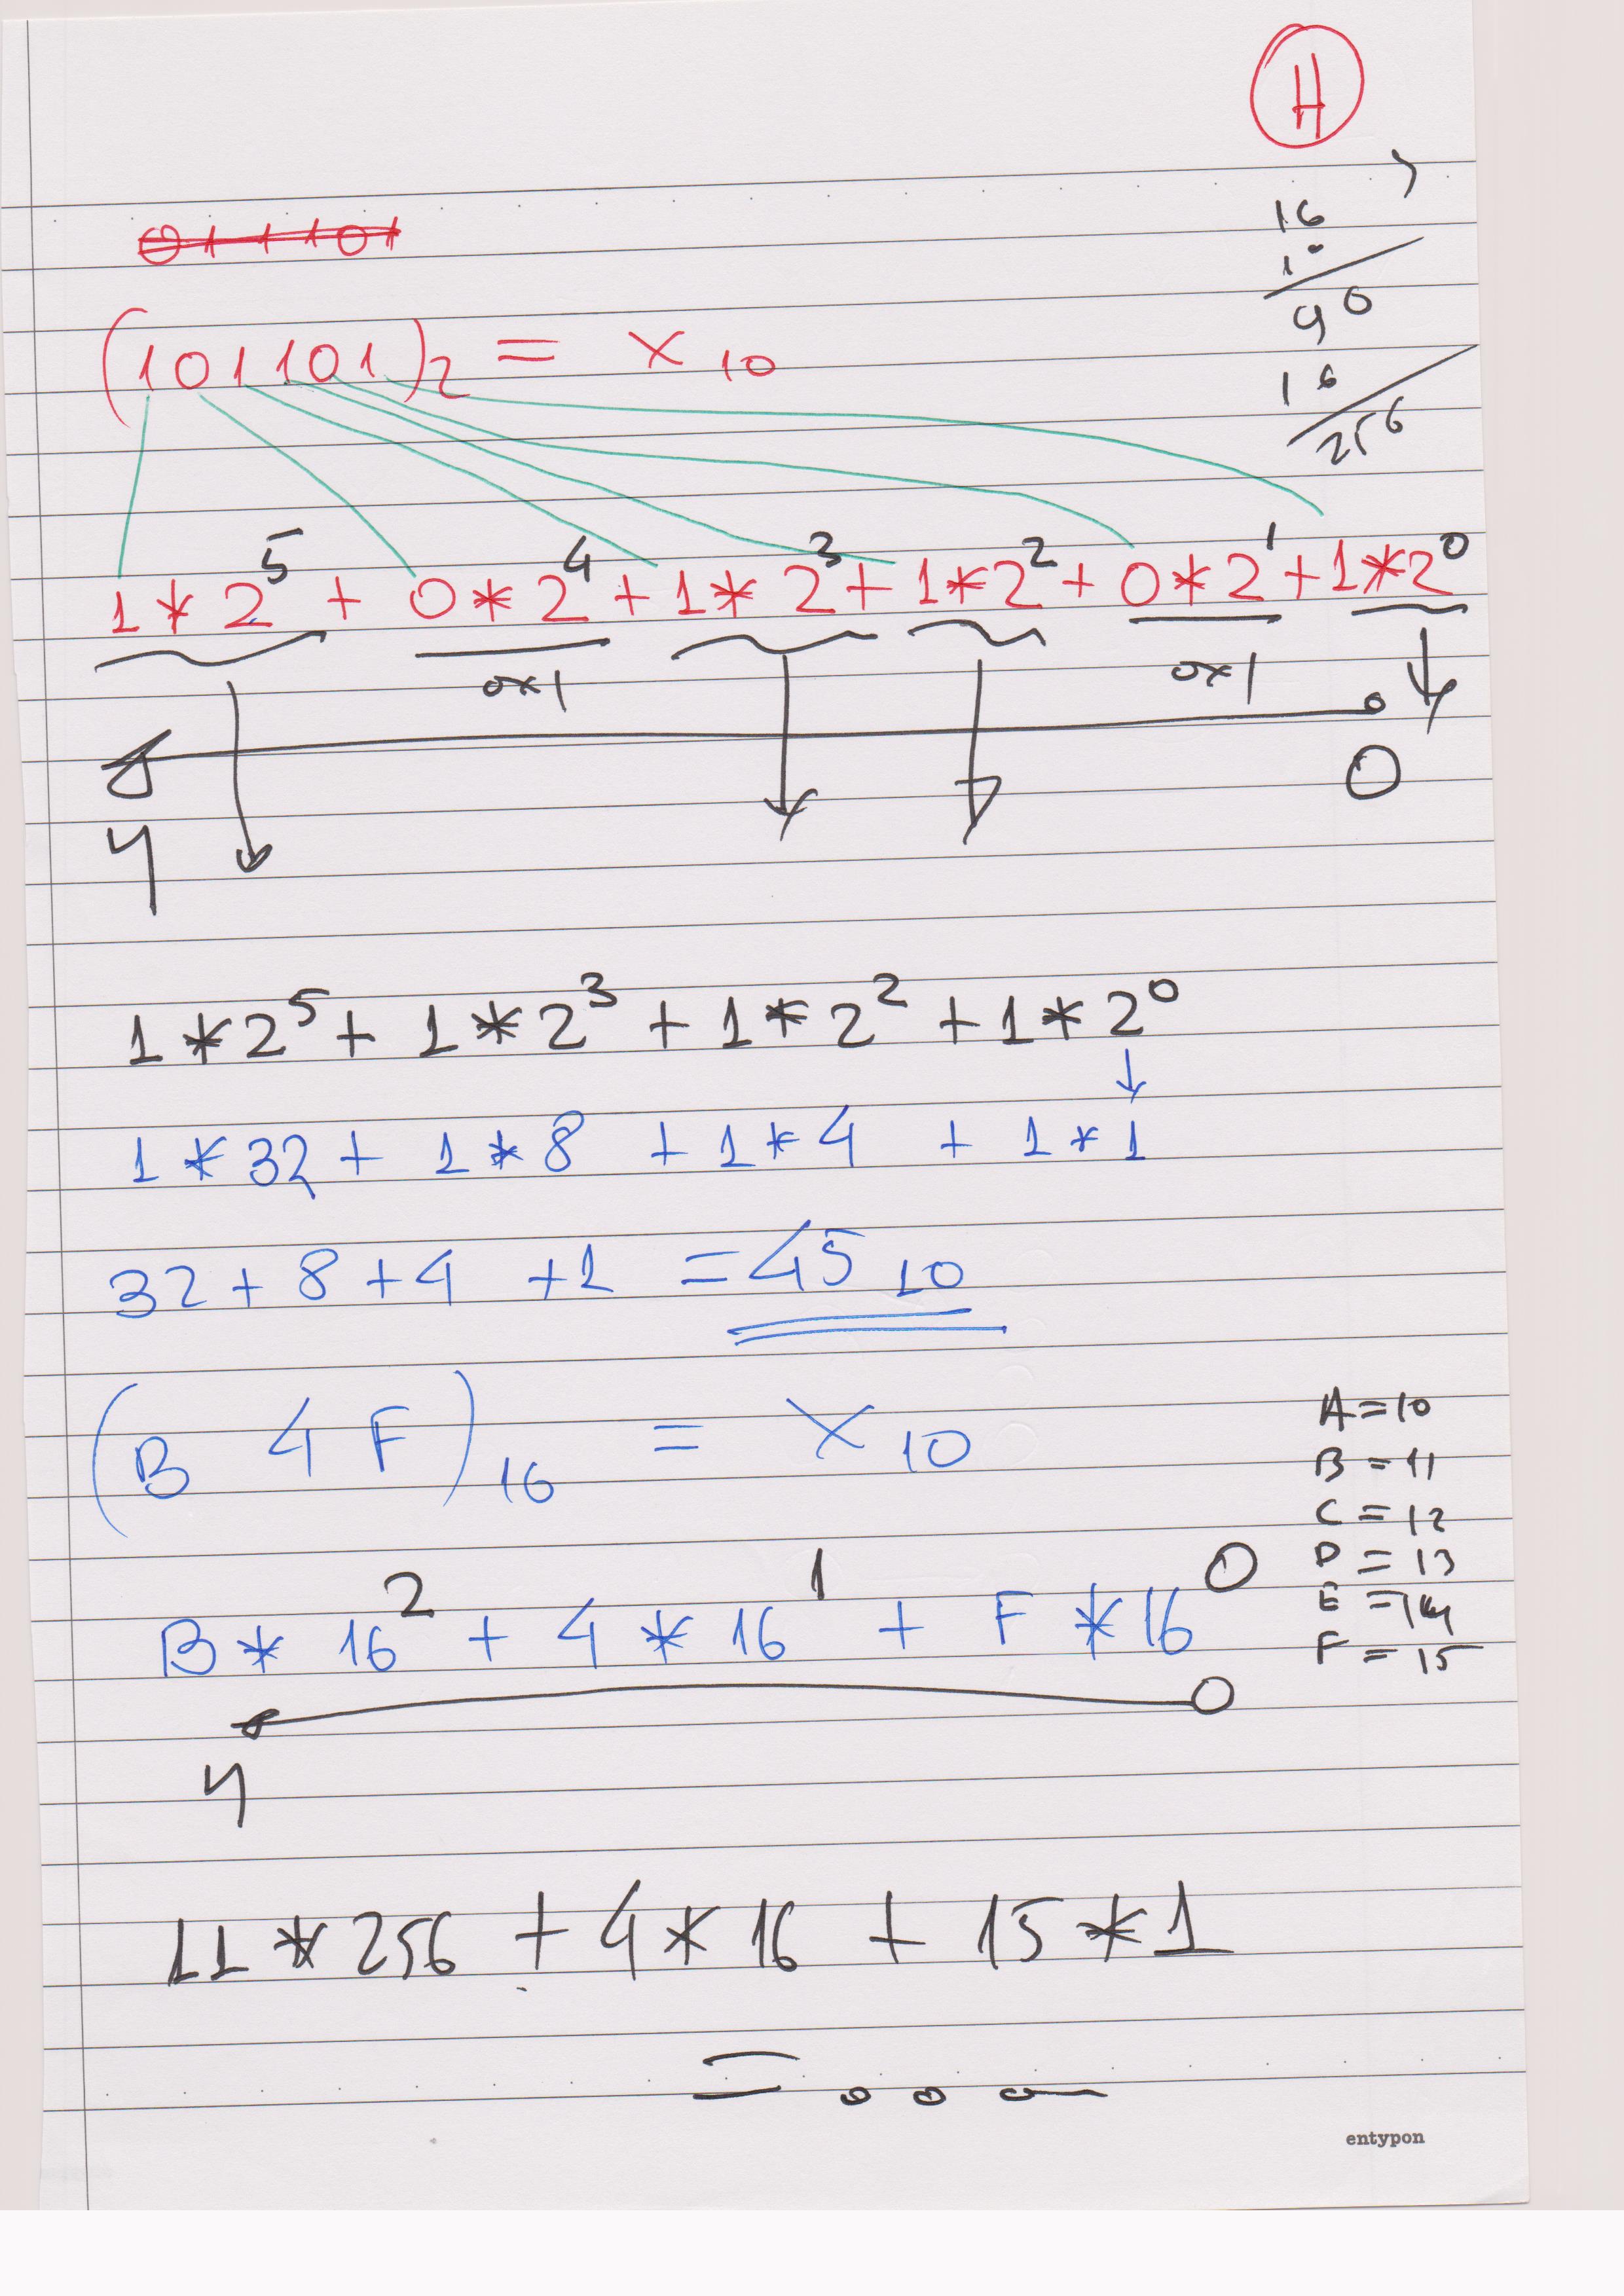 H
011101
16
10
90
16
256
(101101)₂ = x₁₀
1*2⁵ + 0*2⁴ + 1*2³ + 1*2² + 0*2¹ + 1*2⁰
0x1 0x1
0
1*2⁵ + 1*2³ + 1*2² + 1*2⁰
1*32 + 1*8 + 1*4 + 1*1
32 + 8 + 4 + 1 = 45₁₀
(B 4 F)₁₆ = X₁₀
A = 10
B = 11
C = 12
D = 13
E = 14
F = 15
B * 16² + 4 * 16¹ + F * 16⁰
11 * 256 + 4 * 16 + 15 * 1
= ...
entypon